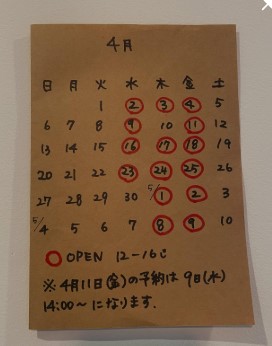 4月
日 月 火 水 木 金 土
1 2 3 4 5
6 7 8 9 10 11 12
13 14 15 16 17 18 19
20 21 22 23 24 25 26
27 28 29 30 5/1 2 3
5/4 5 6 7 8 9 10
○ OPEN 12-16じ
※4月11日(金)の予約は 9日(水)
14:00〜になります.